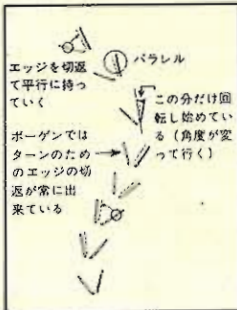 パラレル
エッジを切返
て平行に持っ
ていく
この分だけ回
転し始めてい
る(角度が変
って行く)
ボーゲンでは
ターンのため
のエッジの切
返が常に出
来ている